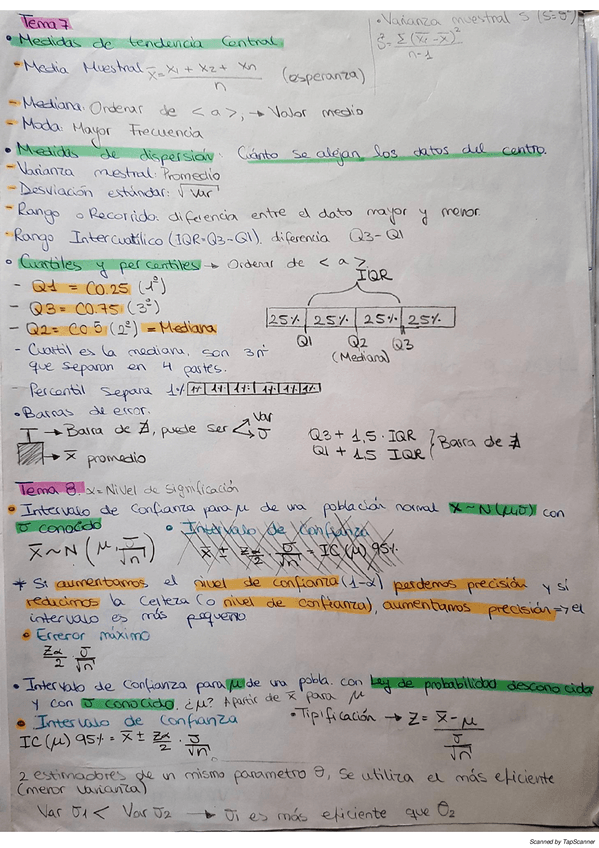 Tema 7
• Varianza muestral S (S=σ̂)
• Medidas de tendencia Central
Ŝ = Σ(x̄ᵢ - x̄)² / n-1
- Media Muestral x̄ = x₁ + x₂ + xₙ / n (esperanza)
- Mediana: Ordenar de < a >, → Valor medio
- Moda: Mayor Frecuencia
• Medidas de dispersión: Cuánto se alejan los datos del centro.
- Varianza mestral: Promedio
- Desviación estándar: √Var
- Rango o Recorrido: diferencia entre el dato mayor y menor.
- Rango Intercuatílico (IQR=Q3-Q1). diferencia Q3-Q1
• Cuartiles y percentiles → Ordenar de < a >
IQR
- Q1 = C0.25 (1º)
- Q3 = C0.75 (3º)
- Q2 = C0 5 (2º) = Mediana
25% 25% 25% 25%
Q1 Q2 Q3
(Mediana)
- Cuartil es la mediana, son 3nº
que separan en 4 partes.
- Percentil separa 1% 1% 1% 1% 1% 1% 1%
• Barras de error.
→ Barra de ∄, puede ser Var σ
→ x̄ promedio
Q3 + 1,5 · IQR
Q1 + 1,5 IQR } Barra de ∄
Tema 8. α = Nivel de significación
• Intervalo de Confianza para μ de una población normal X~N(μ,σ) con
σ conocido
• Intervalo de Confianza
X̄ ~ N (μ, σ/√n)
x̄ ± zα/2 · σ/√n = IC(μ) 95%
* Si aumentamos el nivel de confianza (1-α) perdemos precisión y si
reducimos la Certeza (o nivel de confianza), aumentamos precisión => el
intervalo es más pequeño
• Erreror máximo
zα/2 · σ/√n
• Intervalo de Confianza para μ de una pobla. con Ley de probabilidad desconocida
y con σ conocido, ¿μ? Apartir de x̄ para μ
• Intervalo de Confianza
• Tipificación → Z = x̄ - μ / σ/√n
IC(μ) 95% = x̄ ± zα/2 · σ/√n
2 estimadores de un mismo parametro θ, se utiliza el más eficiente
(menor varianza)
Var σ1 < Var σ2 → σ1 es más eficiente que θ2
Scanned by TapScanner